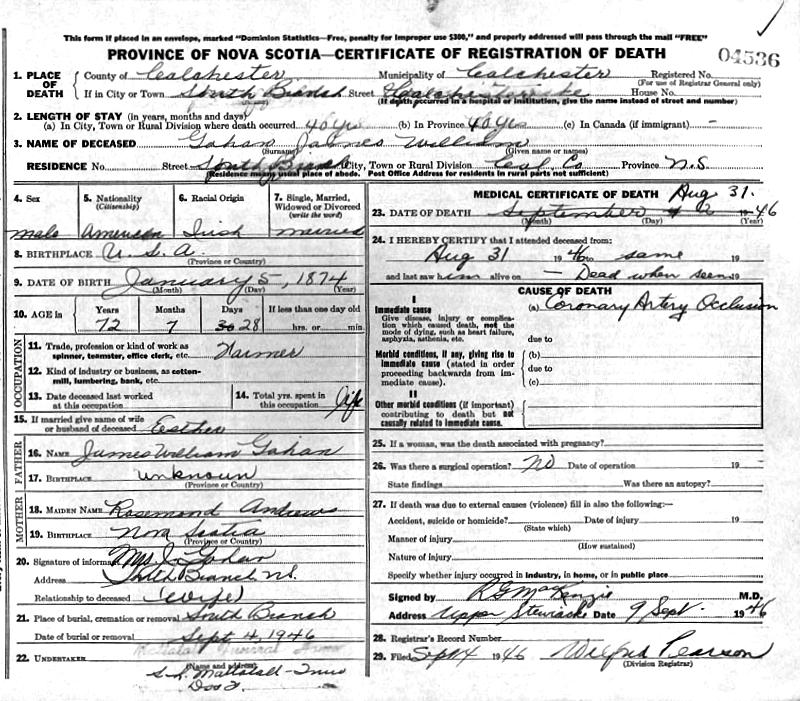 This form if placed in an envelope, marked "Dominion Statistics—Free, penalty for improper use $300," and properly addressed will pass through the mail "FREE"
PROVINCE OF NOVA SCOTIA—CERTIFICATE OF REGISTRATION OF DEATH
04536
1. PLACE OF DEATH County of Colchester Municipality of Colchester Registered No.
(For use of Registrar General only)
If in City or Town South Branch Street House No.
(If death occurred in a hospital or institution, give the name instead of street and number)
2. LENGTH OF STAY (in years, months and days)
(a) In City, Town or Rural Division where death occurred 40 yrs (b) In Province 40 yrs (c) In Canada (if immigrant) —
3. NAME OF DECEASED Gahan James William
(Surname) (Given name or names)
RESIDENCE No. Street South Branch City, Town or Rural Division Col. Co Province N.S
(Residence means usual place of abode. Post Office Address for residents in rural parts not sufficient)
4. Sex 5. Nationality (Citizenship) 6. Racial Origin 7. Single, Married, Widowed or Divorced (write the word)
male American Irish married
8. BIRTHPLACE U. S. A.
(Province or Country)
9. DATE OF BIRTH January 5, 1874
(Month) (Day) (Year)
10. AGE in Years Months Days If less than one day old
72 7 30 28 hrs. or min.
OCCUPATION
11. Trade, profession or kind of work as spinner, teamster, office clerk, etc. Farmer
12. Kind of industry or business, as cotton-mill, lumbering, bank, etc.
13. Date deceased last worked at this occupation 14. Total yrs. spent in this occupation life
15. If married give name of wife or husband of deceased Esther
FATHER
16. NAME James William Gahan
17. BIRTHPLACE unknown
(Province or Country)
MOTHER
18. MAIDEN NAME Rosemond Andrews
19. BIRTHPLACE Nova Scotia
(Province or Country)
20. Signature of informant Mrs J. Gahan
Address South Branch N.S.
Relationship to deceased (wife)
21. Place of burial, cremation or removal South Branch
Date of burial or removal Sept 4, 1946
22. UNDERTAKER Mattatall Funeral Home
(Name and address)
Mattatall - Truro
MEDICAL CERTIFICATE OF DEATH Aug 31.
23. DATE OF DEATH September 2 1946
(Month) (Day) (Year)
24. I HEREBY CERTIFY that I attended deceased from:
Aug 31 1946 to same 19
and last saw him alive on — Dead when seen 19
CAUSE OF DEATH
I
Immediate cause
Give disease, injury or complication which caused death, not the mode of dying, such as heart failure, asphyxia, asthenia, etc.
(a) Coronary Artery Occlusion
due to
Morbid conditions, if any, giving rise to immediate cause (stated in order proceeding backwards from immediate cause).
(b)
due to
(c)
II
Other morbid conditions (if important) contributing to death but not causally related to immediate cause.
25. If a woman, was the death associated with pregnancy?
26. Was there a surgical operation? NO Date of operation 19
State findings Was there an autopsy?
27. If death was due to external causes (violence) fill in also the following:—
Accident, suicide or homicide? Date of injury 19
(State which)
Manner of injury
(How sustained)
Nature of injury
Specify whether injury occurred in industry, in home, or in public place
Signed by R G MacKenzie M.D.
Address Upper Stewiacke Date 9 Sept. 1946
28. Registrar's Record Number
29. Filed Sept 4 1946 Wilfred Pearson
(Division Registrar)